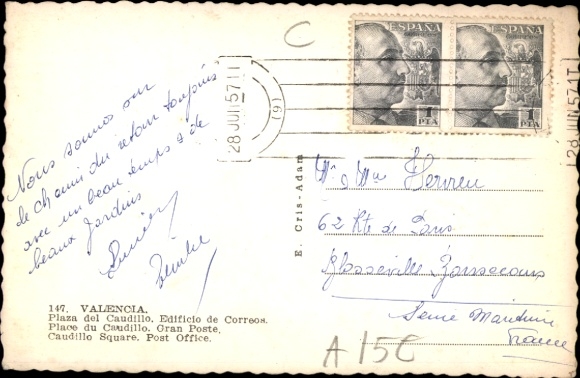 C
28 JUIL 57 11
(9)
28 JUIL 57 1T
ESPAÑA
CORREOS
1
PTA
ESPAÑA
CORREOS
1
PTA
Nous sommes sur
le chemin du retour toujours
avec un beau temps & de
beaux Jardins
E. Cris-Adam
Mr & Mme
62 Rte de Paris
Seine Maritime
France
147. VALENCIA.
Plaza del Caudillo. Edificio de Correos.
Place du Caudillo. Gran Poste.
Caudillo Square. Post Office.
A 15C